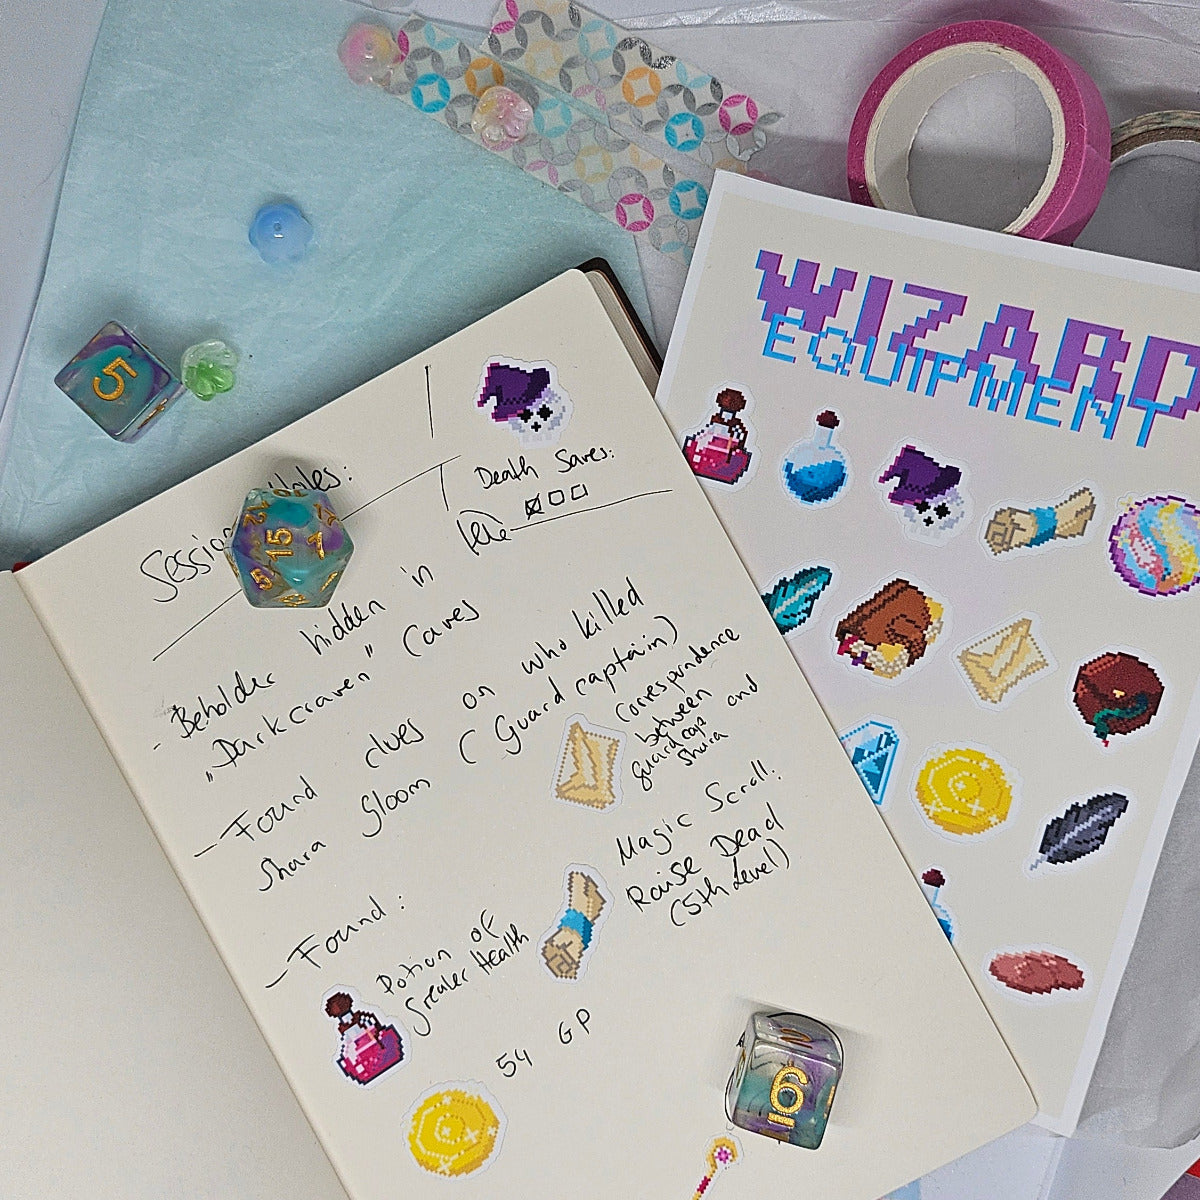 WIZARD
EQUIPMENT
Death Saves:
- Beholder hidden in
"Darkcraven" Caves
- Found clues on who killed
Shara Gloom (Guard captain)
correspondence
between
guard cap and
Shara
- Found:
Potion of
Greater Health
Magic Scroll:
Raise Dead
(5th Level)
54 GP
5
15
5
6